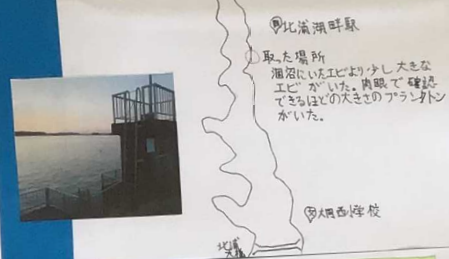 駅 北浦湖畔駅
取った場所
涸沼にいたエビより少し大きな
エビがいた。肉眼で確認
できるほどの大きさのプランクトン
がいた。
文 大同西小学校
北浦
大橋